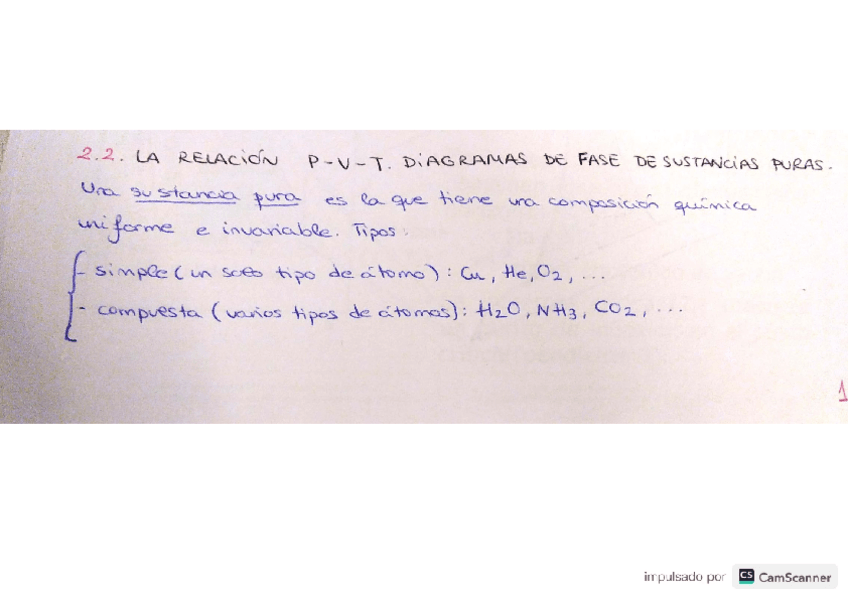 2.2. LA RELACIÓN P-V-T. DIAGRAMAS DE FASE DE SUSTANCIAS PURAS.
Una sustancia pura es la que tiene una composición química
uniforme e invariable. Tipos:
- simple (un solo tipo de átomo): Cu, He, O2, ...
- compuesta (varios tipos de átomos): H2O, NH3, CO2, ...
1
impulsado por CS CamScanner